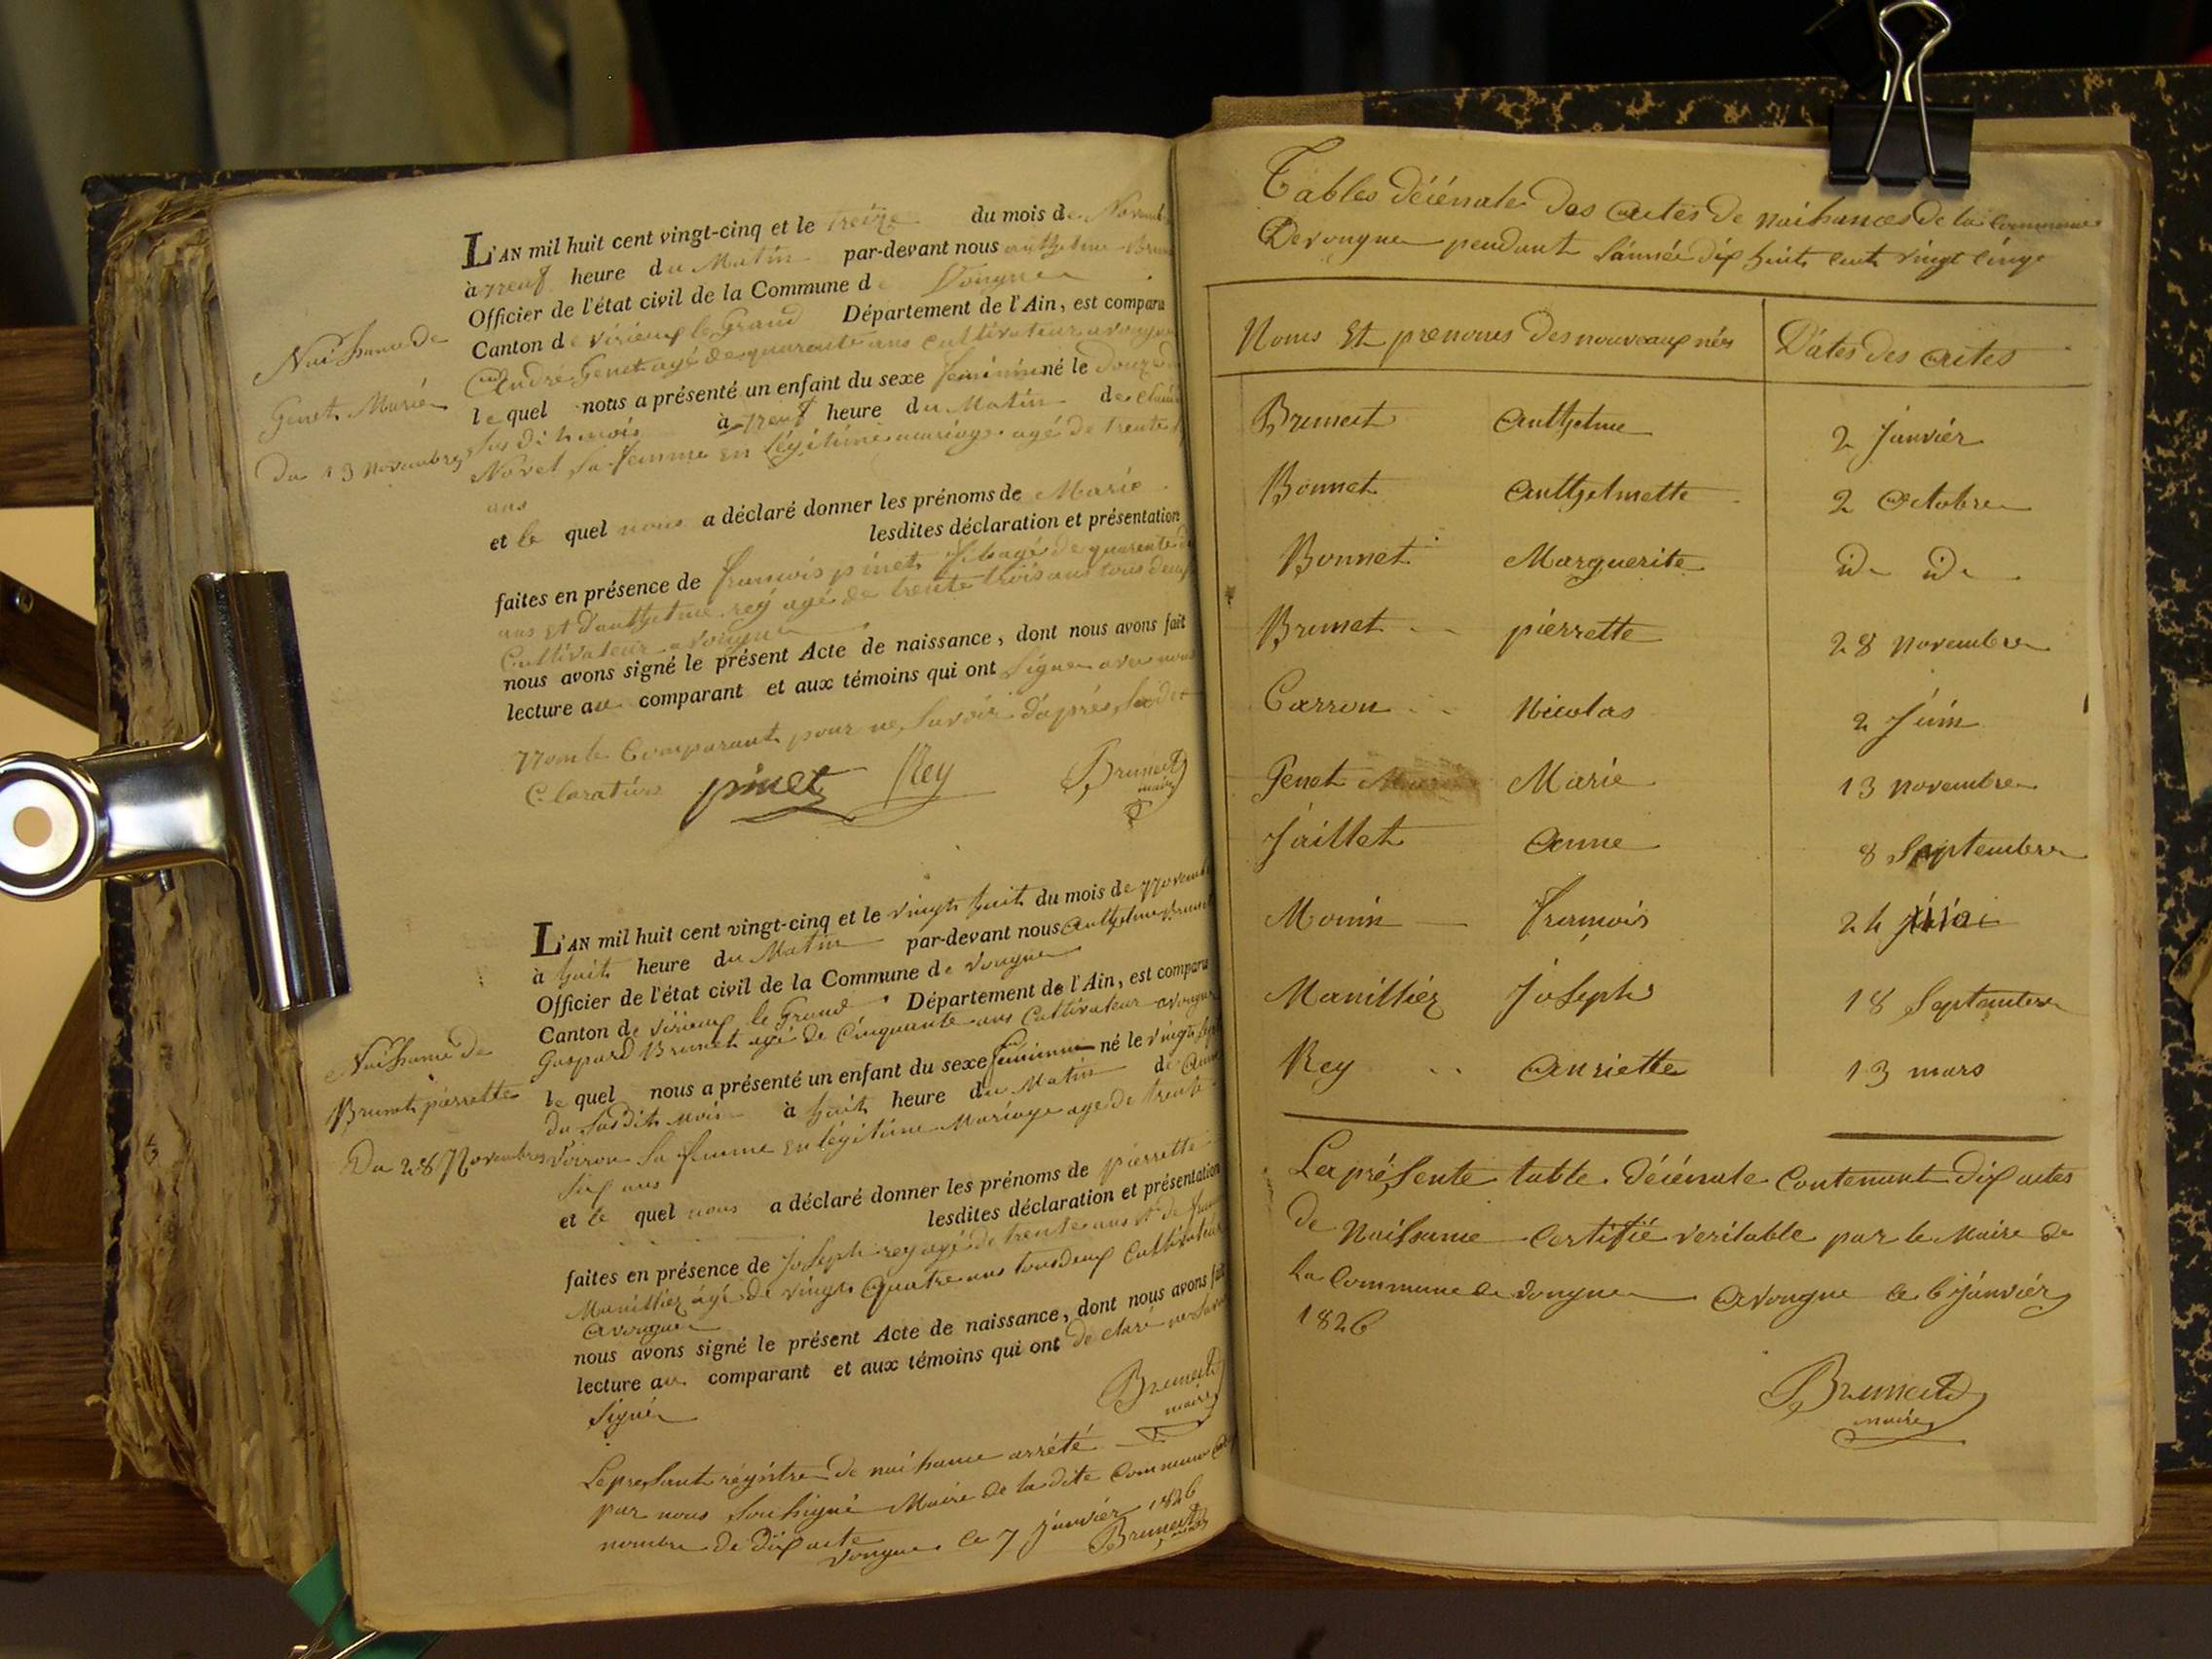 L'AN mil huit cent vingt-cinq et le treize du mois de Novemb
à neuf heure du Matin par-devant nous anthelme Brun
Officier de l'état civil de la Commune de Vongne
Canton de virieux le Grand Département de l'Ain, est comparu
André Genet agé de quarante ans cultivateur a vongne
le quel nous a présenté un enfant du sexe feminin né le douze
sus dit mois à neuf heure du Matin de
Novel sa femme en légitime mariage agé de trente
ans
et le quel nous a déclaré donner les prénoms de Marie
lesdites déclaration et présentation
faites en présence de francois pinet agé de quarante
ans et d'anthelme rey agé de trente trois ans tous deux
Cultivateur a vongne
nous avons signé le présent Acte de naissance, dont nous avons fait
lecture au comparant et aux témoins qui ont signer avec nous
Non le Comparant pour ne savoir d'après sa de
Claration pinet Rey Brunet
maire
Naissance de
Genet Marie
Du 13 Novembre
L'AN mil huit cent vingt-cinq et le vingt huit du mois de Novemb
à huit heure du Matin par-devant nous Anthelme Brunet
Officier de l'état civil de la Commune de Vongne
Canton de Virieux le Grand Département de l'Ain, est comparu
Gaspard Brunet agé de Cinquante ans Cultivateur a vongne
le quel nous a présenté un enfant du sexe feminin né le vingt sept
du susdit mois à huit heure du Matin de Anne
Voiron sa femme en légitime Mariage agé de trente
six ans
et le quel nous a déclaré donner les prénoms de pierrette
lesdites déclaration et présentation
faites en présence de Joseph rey agé de trente ans et de fran
Manilliez agé de vingt quatre ans tous deux Cultivateur
a vongne
nous avons signé le présent Acte de naissance, dont nous avons fait
lecture au comparant et aux témoins qui ont de claré ne savoir
signer
Brunet
maire
Naissance de
Brunet pierrette
Du 28 Novembre
Le presant régistre de naissance arrété
par nous soussigné Maire de la dite Commune
nombre de dix acte
vongne le 7 janvier 1826
Brunet
Tables décénale Des Actes de naissances de la Commune
De vongne pendant l'année dix huit cent vingt cinq
Noms Et prenoms des nouveaux nés Dates des actes
Brunet Anthelme 2 Janvier
Bonnet Anthelmette 2 Octobre
Bonnet Marguerite id id
Brunet pierrette 28 novembre
Carron Nicolas 2 Juin
Genet Marie 13 novembre
Jaillet Anne 8 Septembre
Monin francois 24 mai
Manilliez Joseph 18 Septembre
Rey Anriette 13 mars
La présente table décénale Contenant dix actes
de Naissance Certifié veritable par le Maire de
la Commune de vongne A vongne le 6 janvier
1826
Brunet
maire